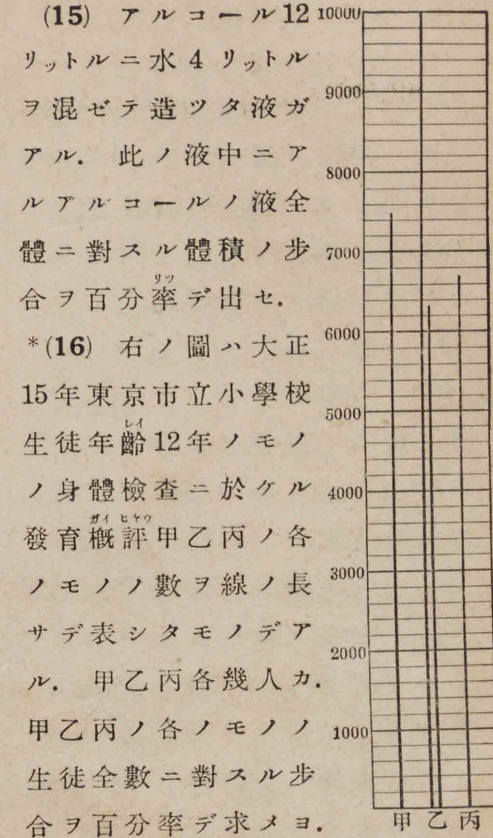 (15) アルコール12
リットルニ水4リットル
ヲ混ゼテ造ツタ液ガ
アル．此ノ液中ニア
ルアルコールノ液全
體ニ對スル體積ノ歩
合ヲ百分率デ出セ．
リツ
*(16) 右ノ圖ハ大正
15年東京市立小學校
生徒年齡12年ノモノ
レイ
ノ身體檢査ニ於ケル
發育概評甲乙丙ノ各
ガイ ヒヤウ
ノモノノ數ヲ線ノ長
サデ表シタモノデア
ル．甲乙丙各幾人カ．
甲乙丙ノ各ノモノノ
生徒全數ニ對スル歩
合ヲ百分率デ求メヨ．
10000
9000
8000
7000
6000
5000
4000
3000
2000
1000
甲乙丙